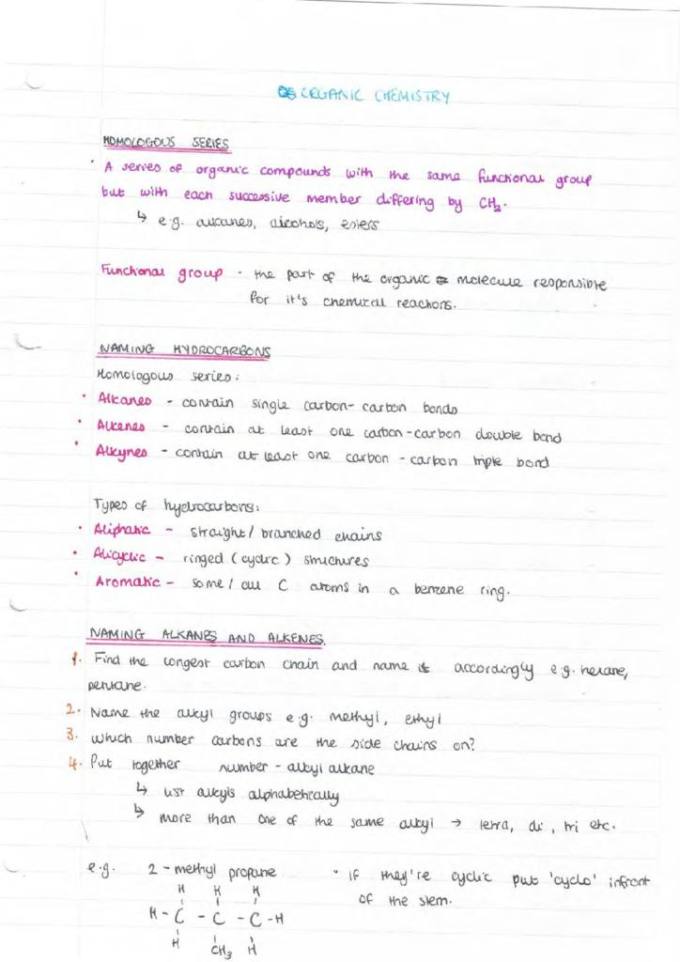 ORGANIC CHEMISTRY
HOMOLOGOUS SERIES
• A series of organic compounds with the same functional group
but with each successive member differing by CH₂.
↳ e.g. alkanes, alcohols, esters
Functional group - the part of the organic molecule responsible
for it's chemical reactions.
NAMING HYDROCARBONS
Homologous series:
• Alkanes - contain single carbon-carbon bonds
• Alkenes - contain at least one carbon-carbon double bond
• Alkynes - contain at least one carbon-carbon triple bond
Types of hydrocarbons:
• Aliphatic - straight/branched chains
• Alicyclic - ringed (cyclic) structures
• Aromatic - some/all C atoms in a benzene ring.
NAMING ALKANES AND ALKENES.
1. Find the longest carbon chain and name it accordingly e.g. hexane,
pentane.
2. Name the alkyl groups e.g. methyl, ethyl
3. Which number carbons are the side chains on?
4. Put together number-alkyl alkane
↳ list alkyls alphabetically
↳ more than one of the same alkyl → tetra, di, tri etc.
e.g. 2-methyl propane • if they're cyclic put 'cyclo' infront
of the stem.
H H H
H - C - C - C - H
H CH₃ H